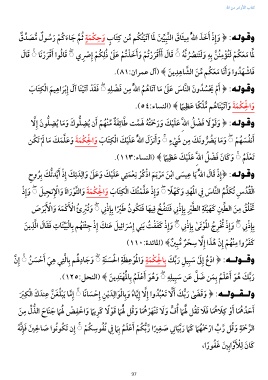 كتاب الأمر من الله
وقوله: ﴿ وَإِذْ أَخَذَ اللَّهُ مِيثَاقَ النَّبِيِّينَ لَمَا آتَيْتُكُم مِّن كِتَابٍ وَحِكْمَةٍ ثُمَّ جَاءَكُمْ رَسُولٌ مُّصَدِّقٌ
لِّمَا مَعَكُمْ لَتُؤْمِنُنَّ بِهِ وَلَتَنصُرُنَّهُ ۚ قَالَ أَأَقْرَرْتُمْ وَأَخَذْتُمْ عَلَىٰ ذَٰلِكُمْ إِصْرِي ۖ قَالُوا أَقْرَرْنَا ۚ قَالَ
فَاشْهَدُوا وَأَنَا مَعَكُم مِّنَ الشَّاهِدِينَ ﴾ (آل عمران:٨١).
وقوله: ﴿ أَمْ يَحْسُدُونَ النَّاسَ عَلَىٰ مَا آتَاهُمُ اللَّهُ مِن فَضْلِهِ ۖ فَقَدْ آتَيْنَا آلَ إِبْرَاهِيمَ الْكِتَابَ
وَالْحِكْمَةَ وَآتَيْنَاهُم مُّلْكًا عَظِيمًا ﴾ (النساء:٥٤).
وقوله: ﴿ وَلَوْلَا فَضْلُ اللَّهِ عَلَيْكَ وَرَحْمَتُهُ لَهَمَّت طَّائِفَةٌ مِّنْهُمْ أَن يُضِلُّوكَ وَمَا يُضِلُّونَ إِلَّا
أَنفُسَهُمْ ۖ وَمَا يَضُرُّونَكَ مِن شَيْءٍ ۚ وَأَنزَلَ اللَّهُ عَلَيْكَ الْكِتَابَ وَالْحِكْمَةَ وَعَلَّمَكَ مَا لَمْ تَكُن
تَعْلَمُ ۚ وَكَانَ فَضْلُ اللَّهِ عَلَيْكَ عَظِيمًا ﴾ (النساء:١١٣).
وقوله: ﴿ إِذْ قَالَ اللَّهُ يَا عِيسَى ابْنَ مَرْيَمَ اذْكُرْ نِعْمَتِي عَلَيْكَ وَعَلَىٰ وَالِدَتِكَ إِذْ أَيَّدتُّكَ بِرُوحِ
الْقُدُسِ تُكَلِّمُ النَّاسَ فِي الْمَهْدِ وَكَهْلًا ۖ وَإِذْ عَلَّمْتُكَ الْكِتَابَ وَالْحِكْمَةَ وَالتَّوْرَاةَ وَالْإِنجِيلَ ۖ وَإِذْ
تَخْلُقُ مِنَ الطِّينِ كَهَيْئَةِ الطَّيْرِ بِإِذْنِي فَتَنفُخُ فِيهَا فَتَكُونُ طَيْرًا بِإِذْنِي ۖ وَتُبْرِئُ الْأَكْمَهَ وَالْأَبْرَصَ
بِإِذْنِي ۖ وَإِذْ تُخْرِجُ الْمَوْتَىٰ بِإِذْنِي ۖ وَإِذْ كَفَفْتُ بَنِي إِسْرَائِيلَ عَنكَ إِذْ جِئْتَهُم بِالْبَيِّنَاتِ فَقَالَ الَّذِينَ
كَفَرُوا مِنْهُمْ إِنْ هَٰذَا إِلَّا سِحْرٌ مُّبِينٌ﴾ (المائدة:١١٠)
وقوله: ﴿ ادْعُ إِلَىٰ سَبِيلِ رَبِّكَ بِالْحِكْمَةِ وَالْمَوْعِظَةِ الْحَسَنَةِ ۖ وَجَادِلْهُم بِالَّتِي هِيَ أَحْسَنُ ۚ إِنَّ
رَبَّكَ هُوَ أَعْلَمُ بِمَن ضَلَّ عَن سَبِيلِهِ ۖ وَهُوَ أَعْلَمُ بِالْمُهْتَدِينَ ﴾ (النحل:١٢٥).
ولقوله: ﴿ وَقَضَىٰ رَبُّكَ أَلَّا تَعْبُدُوا إِلَّا إِيَّاهُ وَبِالْوَالِدَيْنِ إِحْسَانًا ۚ إِمَّا يَبْلُغَنَّ عِندَكَ الْكِبَرَ
أَحَدُهُمَا أَوْ كِلَاهُمَا فَلَا تَقُل لَّهُمَا أُفٍّ وَلَا تَنْهَرْهُمَا وَقُل لَّهُمَا قَوْلًا كَرِيمًا وَاخْفِضْ لَهُمَا جَنَاحَ الذُّلِّ مِنَ
الرَّحْمَةِ وَقُل رَّبِّ ارْحَمْهُمَا كَمَا رَبَّيَانِي صَغِيرًا رَّبُّكُمْ أَعْلَمُ بِمَا فِي نُفُوسِكُمْ ۚ إِن تَكُونُوا صَالِحِينَ فَإِنَّهُ
كَانَ لِلْأَوَّابِينَ غَفُورًا،
97